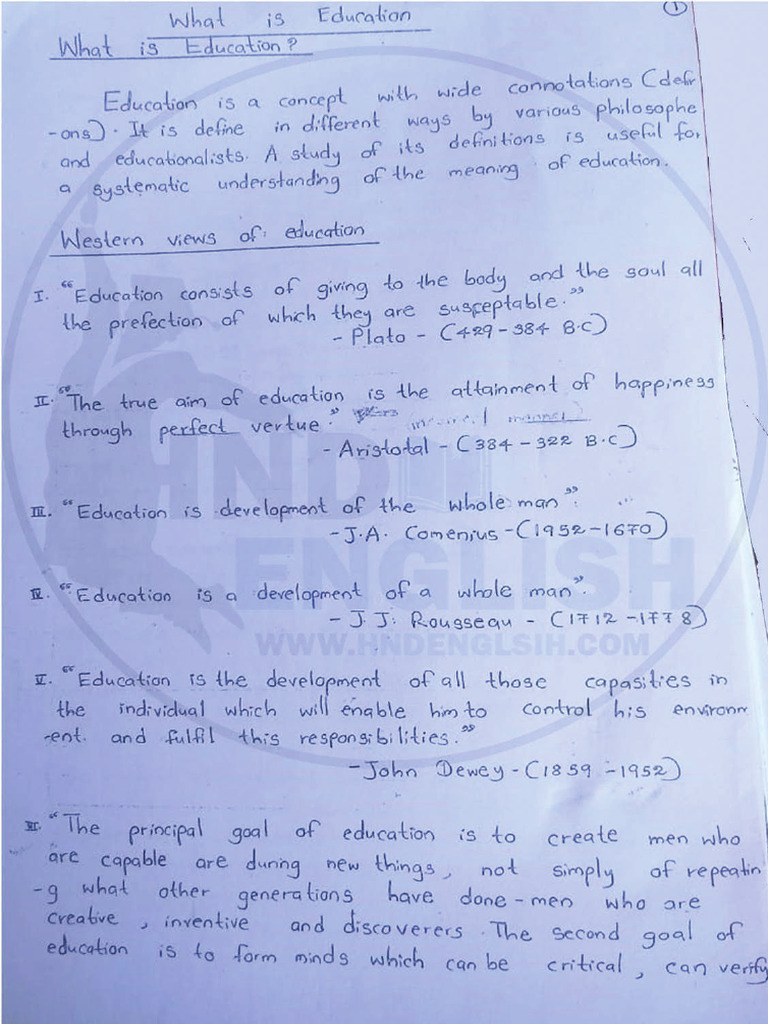 1
What is Education
What is Education?
Education is a concept with wide connotations (defir
-ons). It is define in different ways by various philosophe
and educationalists. A study of its definitions is useful for
a systematic understanding of the meaning of education.
Western views of education
I. "Education consists of giving to the body and the soul all
the prefection of which they are susceptable."
- Plato - (429-384 B.C)
II. "The true aim of education is the attainment of happiness
through perfect vertue." manner
- Aristotal - (384-322 B.C)
III. "Education is development of the whole man".
- J.A. Comenius - (1952-1670)
IV. "Education is a development of a whole man".
- J.J. Rousseau - (1712-1778)
V. "Education is the development of all those capasities in
the individual which will enable him to control his environm
-ent. and fulfil this responsibilities."
- John Dewey - (1859-1952)
VI. "The principal goal of education is to create men who
are capable are during new things, not simply of repeatin
-g what other generations have done-men who are
creative, inventive and discoverers. The second goal of
education is to form minds which can be critical, can verify
HND
ENGLISH
WWW.HNDENGLSIH.COM